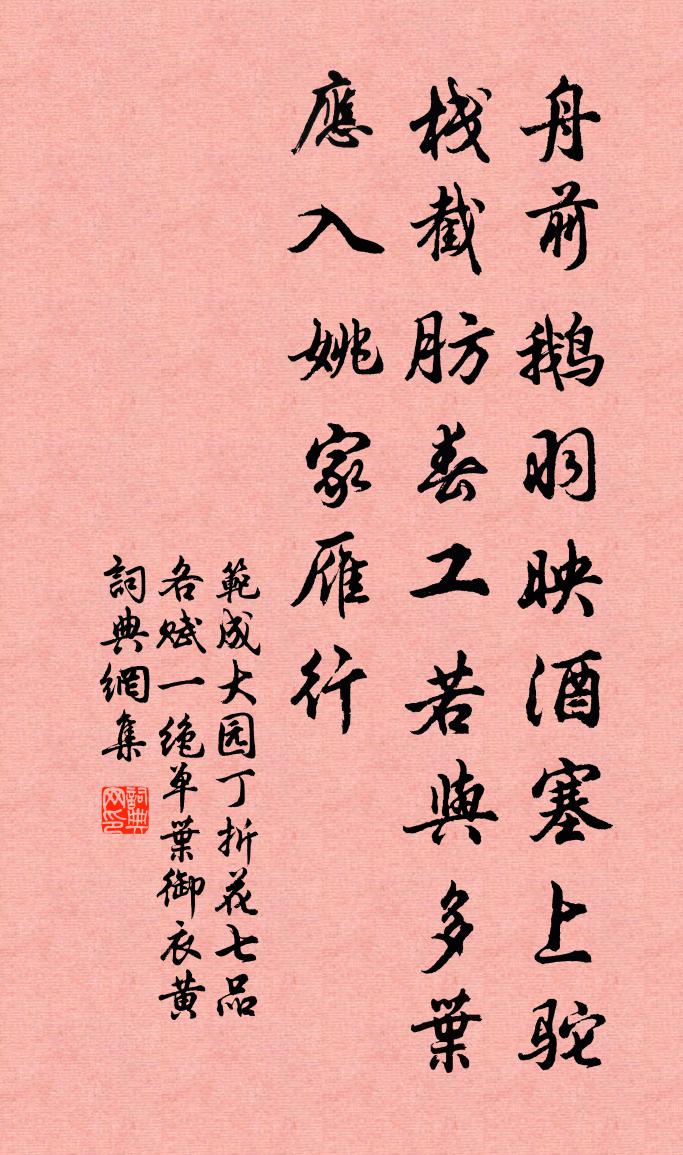 舟前鹅羽映酒塞上驼
栈截肪春工若與多葉
應入姚家雁行
範成大园丁折花七品
各赋一绝单葉御衣黄
詞典網集
詞典网印